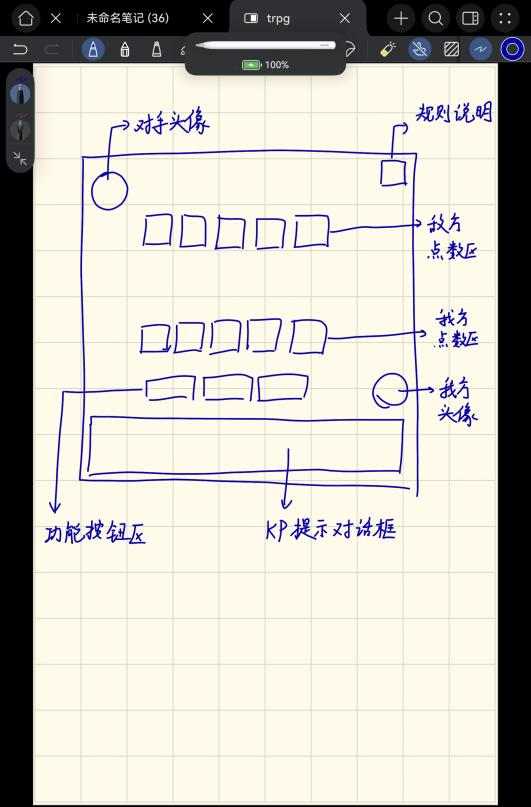 未命名笔记 (36)
trpg
100%
对手头像
规则说明
敌方
点数区
我方
点数区
我方
头像
功能按钮区
KP提示对话框